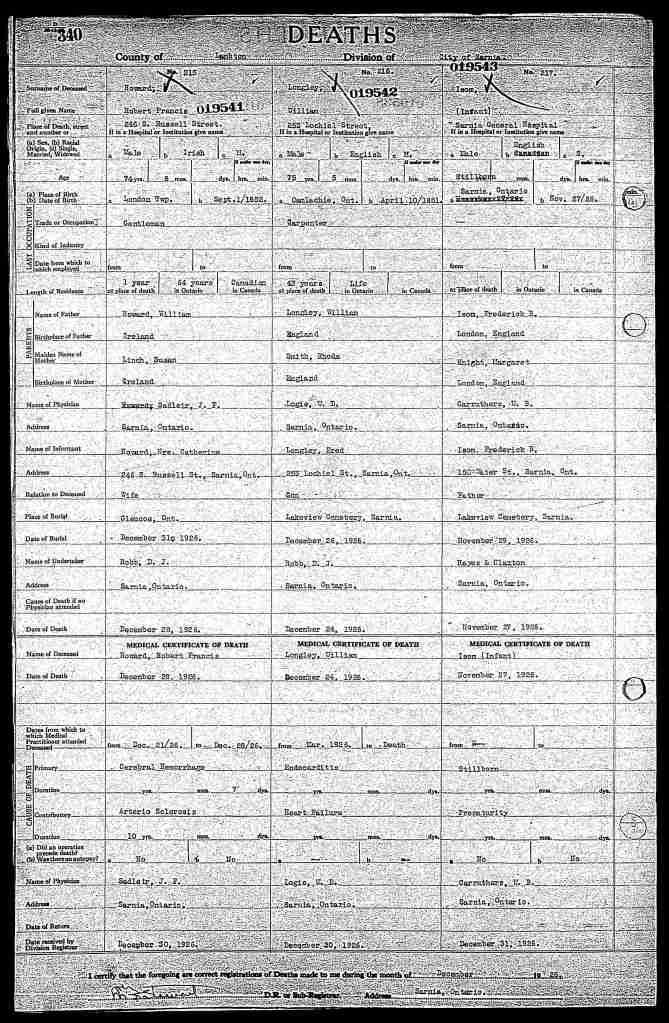 340
DEATHS
County of Lambton Division of City of Sarnia
No. 215 No. 216. 019543 No. 217.
Surname of Deceased Howard, Longley, 019542 Ison,
Full given Name Robert Francis 019541 (Infant)
Place of Death, street and number or 246 S. Russell Street. 253 Lochiel Street, Sarnia General Hospital
If in a Hospital or Institution give name If in a Hospital or Institution give name If in a Hospital or Institution give name
English
(a) Sex, (b) Racial Origin, (c) Single, Married, Widowed a Male b Irish c M. a Male b English c M. a Male b Canadian c S.
If under one day If under one day If under one day
Age 74 yrs. 3 mos. dys. hrs. min. 75 yrs. 8 mos. dys. hrs. min. Stillborn
(a) Place of Birth Sarnia, Ontario
(b) Date of Birth a London Twp. b Sept.1/1852. a Camlachie, Ont. b April 10/1851. b Nov. 27/26.
LAST OCCUPATION
Trade or Occupation Gentleman Carpenter —
Kind of Industry
Date from which to which employed from to from to from to
Length of Residence 1 year 64 years Canadian 43 years Life
at place of death in Ontario in Canada at place of death in Ontario in Canada at place of death in Ontario in Canada
PARENTS
Name of Father Howard, William Longley, William Ison, Frederick B.
Birthplace of Father Ireland England London, England
Maiden Name of Mother Linch, Susan Smith, Rhoda Knight, Margaret
Birthplace of Mother Ireland England London, England
Name of Physician Sadleir, J. F. Logie, W. D. Carruthers, W. B.
Address Sarnia, Ontario. Sarnia, Ontario. Sarnia, Ontario.
Name of Informant Howard, Mrs. Catherine Longley, Fred Ison, Frederick B.
Address 246 S. Russell St., Sarnia,Ont. 253 Lochiel St., Sarnia,Ont. Sarnia, Ont.
Relative to Deceased Wife Son Father
Place of Burial Glencoe, Ont. Lakeview Cemetery, Sarnia. Lakeview Cemetery, Sarnia.
Date of Burial December 31, 1926. December 26, 1926. November 29, 1926.
Name of Undertaker Robb, D. J. Robb, D. J. Hayes & Claxton
Address Sarnia,Ontario. Sarnia, Ontario. Sarnia, Ontario.
Cause of Death if no Physician attended
Date of Death December 28, 1926. December 24, 1926. November 27, 1926.
MEDICAL CERTIFICATE OF DEATH MEDICAL CERTIFICATE OF DEATH MEDICAL CERTIFICATE OF DEATH
Name of Deceased Howard, Robert Francis Longley, William Ison (Infant)
Date of Death December 28, 1926. December 24, 1926. November 27, 1926.
Dates from which to which Medical Practitioner attended Deceased from Dec. 21/26. to Dec. 28/26. from Mar. 1926. to Death from — to
CAUSE OF DEATH
Primary Cerebral Hemorrhage Endocarditis Stillborn
Duration yrs. mos. 7 dys. yrs. mos. dys. yrs. mos. dys.
Contributory Arterio Sclerosis Heart Failure Prematurity
Duration 10 yrs. mos. dys. yrs. mos. dys. yrs. mos. dys.
(a) Did an operation precede death?
(b) Was there an autopsy? a No b No a — b — a No b No
Name of Physician Sadleir, J. F. Logie, W. D. Carruthers, W. B.
Address Sarnia,Ontario. Sarnia, Ontario. Sarnia, Ontario.
Date of Return
Date received by Division Registrar December 30, 1926. December 30, 1926. December 31, 1926.
I certify that the foregoing are correct registrations of Deaths made to me during the month of December 19 26.
D.R. or Sub-Registrar. Address Sarnia, Ontario.